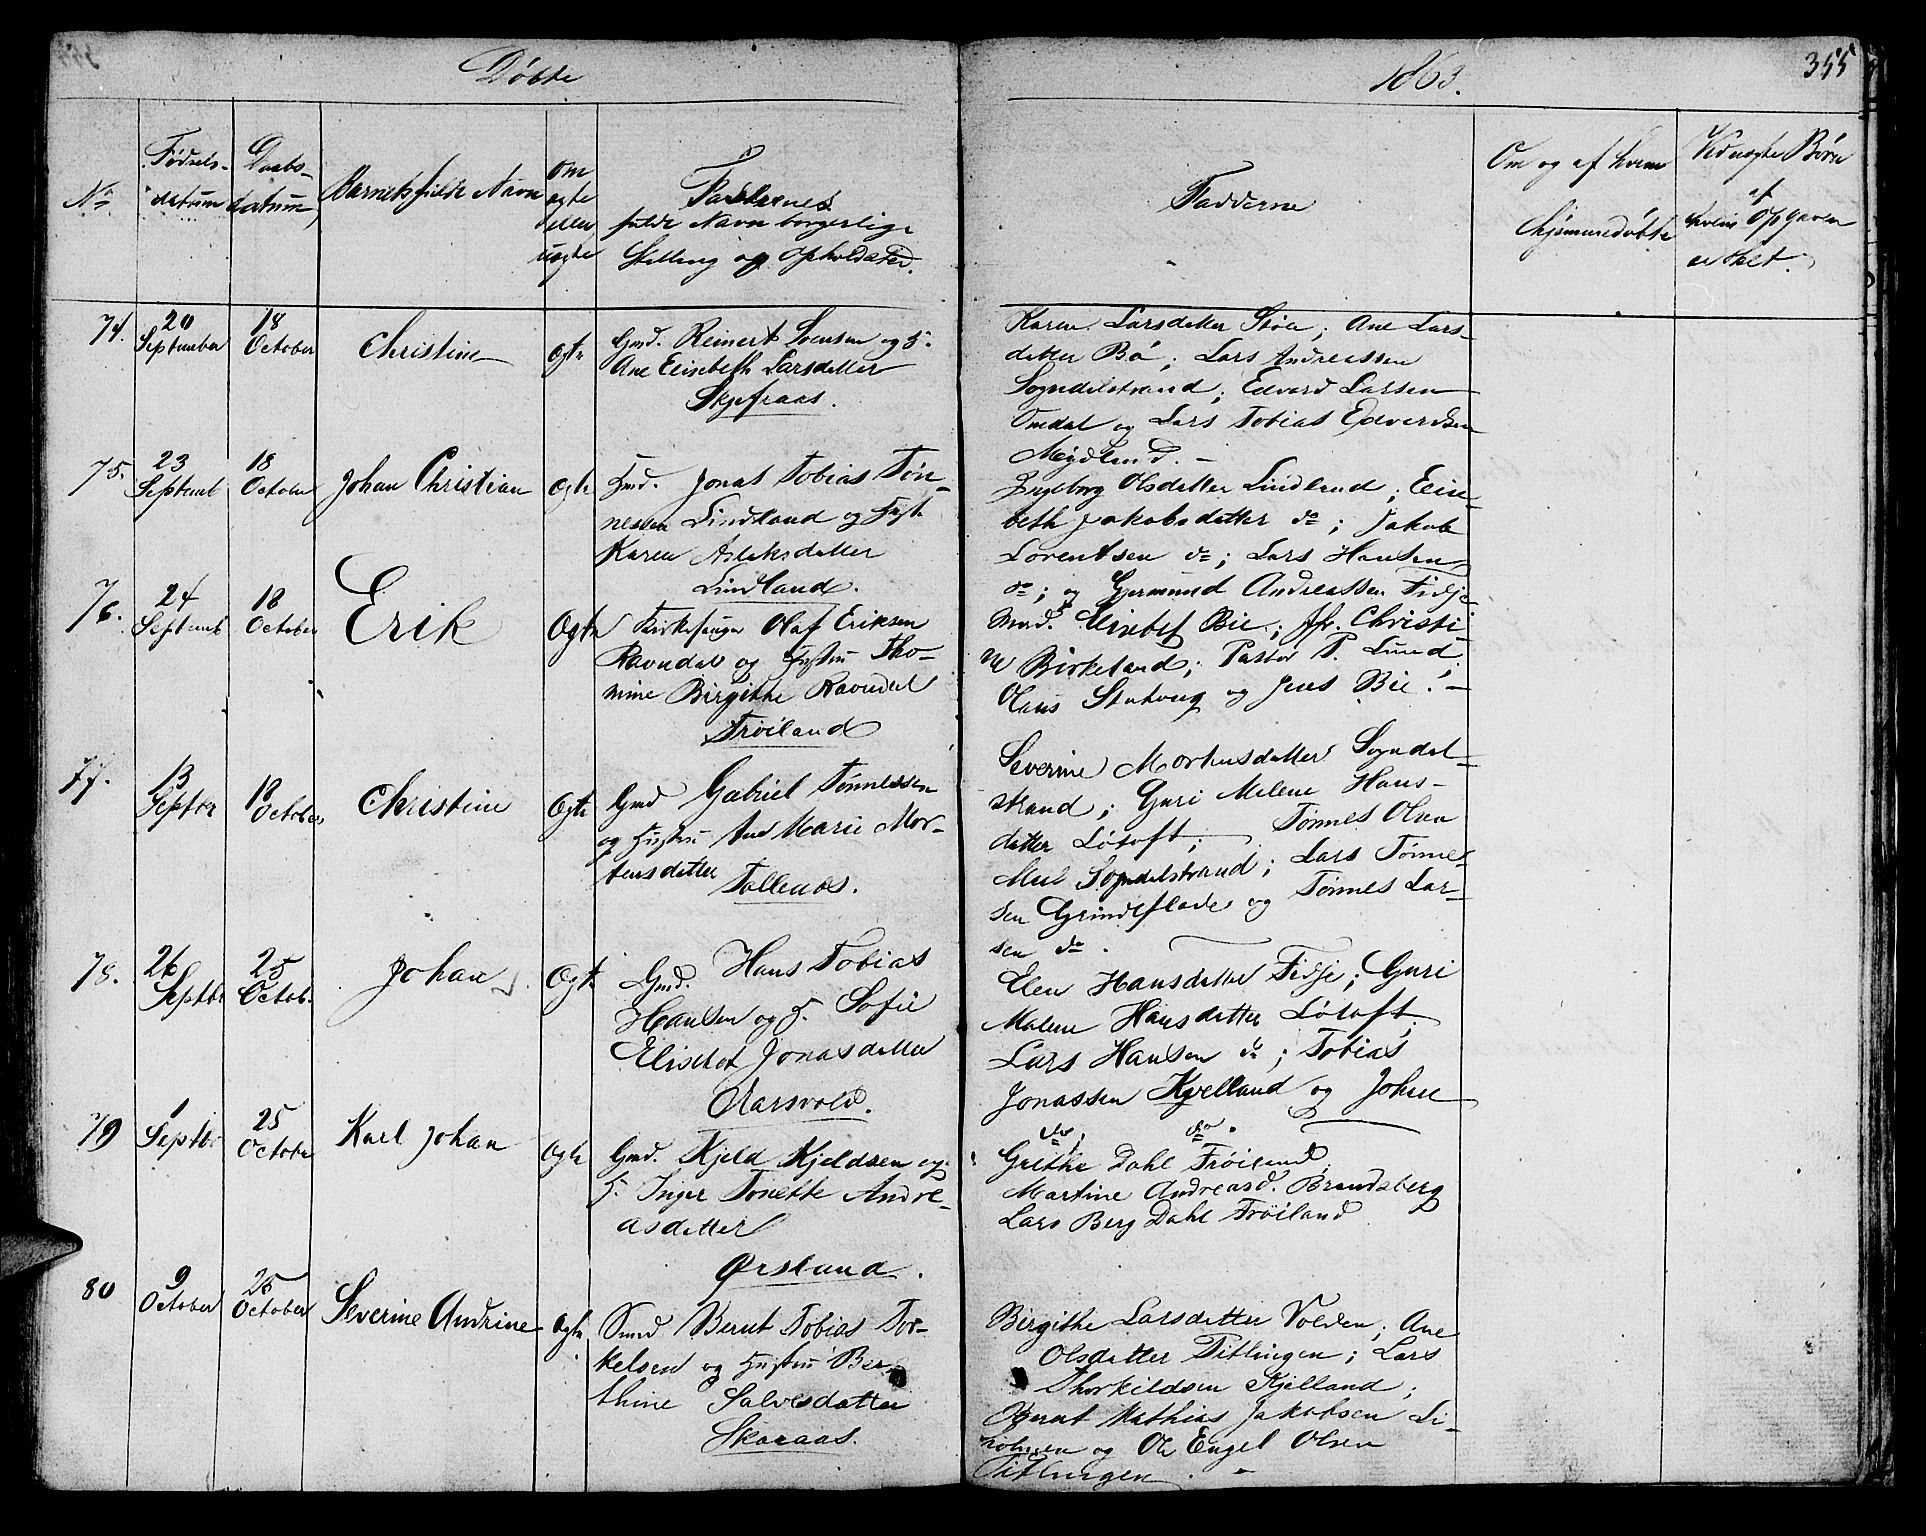 Døbte
1863.
355
No.
Fødsels-
datum
Daabs-
datum
Barnets fulde Navn
Om
ægte
eller
uægte
Forældrenes
fulde Navn borgerlige
Stilling og Opholdssted.
Fadderne
Om og af hvem
hjemmedøbte
Ved uægte Børn
af
hvem Opgaven
er skeet.
74.
20
September
18
October
Christine
Ægte
Gmd. Reinert Svensen og H.
Ane Elisebeth Larsdatter
Skjefraas.
Karen Larsdatter Støle; Ane Lars-
datter Bø; Lars Andreassen
Sogndalstrand; Edvard Larsen
Omdal og Lars Tobias Edvardsen
Mydland. –
75.
23
Septemb
18
October
Johan Christian
Ægte
Hmd. Jonas Tobias Tøn-
nessen Lindland og Hust.
Karen Aslaksdatter
Lindland.
Ingeborg Olsdatter Lindland; Elise-
beth Jakobsdatter do; Jakob
Lorentsen do; Lars Hansen
do; og Gjermund Andreassen Fidje
76.
24
Septemb
18
October
Erik
Ægte
Kirkesanger Olaf Eriksen
Ravndal og Hustru Tho-
mine Birgithe Ravndal
Frøiland
Mad. Elisabet Bie; Jfr. Christi-
ne Birkeland; Pastor P. Lund;
Olaus Stutveg og Jens Bie. –
77.
13
Septbr
18
October
Christine
Ægte
Gmd Gabriel Tønnessen
og Hustru Ane Marie Mor-
tensdatter
Tollenæs.
Severine Mortensdatter Sogndal-
strand; Guri Malene Hans-
datter Løtoft; Tønnes Olsen
Mul Sogndalstrand; Lars Tønne-
sen Grindeflade og Tønnes Lar-
sen do.
78.
26
Septbr
25
Octob.
Johan
Ægte
Gmd. Hans Tobias
Hansen og H. Sofie
Elisebet Jonasdatter
Aarsvold.
Elen Hansdatter Fidje; Guri
Malene Hansdatter Løtoft;
Lars Hansen do; Tobias
Jonassen Kjelland og Johan
do, do.
79
1
Septbr
25
October
Karl Johan
Ægte
Gmd. Kjeld Kjeldsen og
H. Inger Tonette Andre-
asdatter
Ørsland.
Grethe Dahl Frøiland
Martine Andreasd. Brandsberg
Lars Berg Dahl Frøiland
80
9
October
25
October
Severine Andrine
Ægte
Smd Bernt Tobias Tor-
kelsen og Hustru Ber-
thine Salvesdatter
Skaraas.
Birgithe Larsdatter Volden; Ane
Olsdatter Titlingen; Lars
Thorkildsen Kjelland;
Bernt Mathias Jakobsen Li-
holmen og Ole Engel Olsen
Titlingen. –